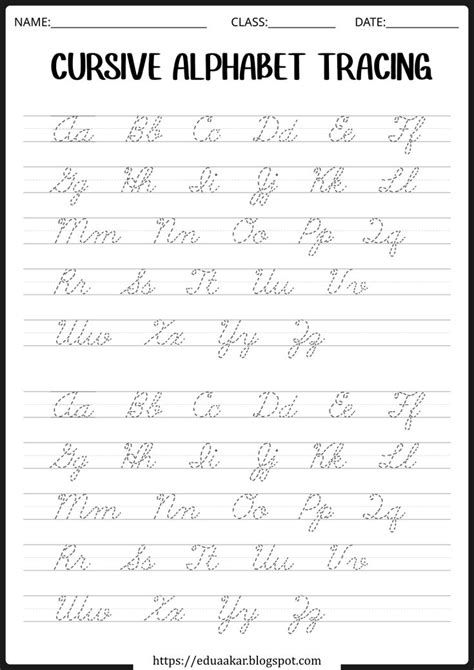 NAME: CLASS: DATE:
CURSIVE ALPHABET TRACING
Aa Bb Cc Dd Ee Ff
Gg Hh Ii Jj Kk Ll
Mm Nn Oo Pp Qq
Rr Ss Tt Uu Vv
Ww Xx Yy Zz
Aa Bb Cc Dd Ee Ff
Gg Hh Ii Jj Kk Ll
Mm Nn Oo Pp Qq
Rr Ss Tt Uu Vv
Ww Xx Yy Zz
https://eduaakar.blogspot.com